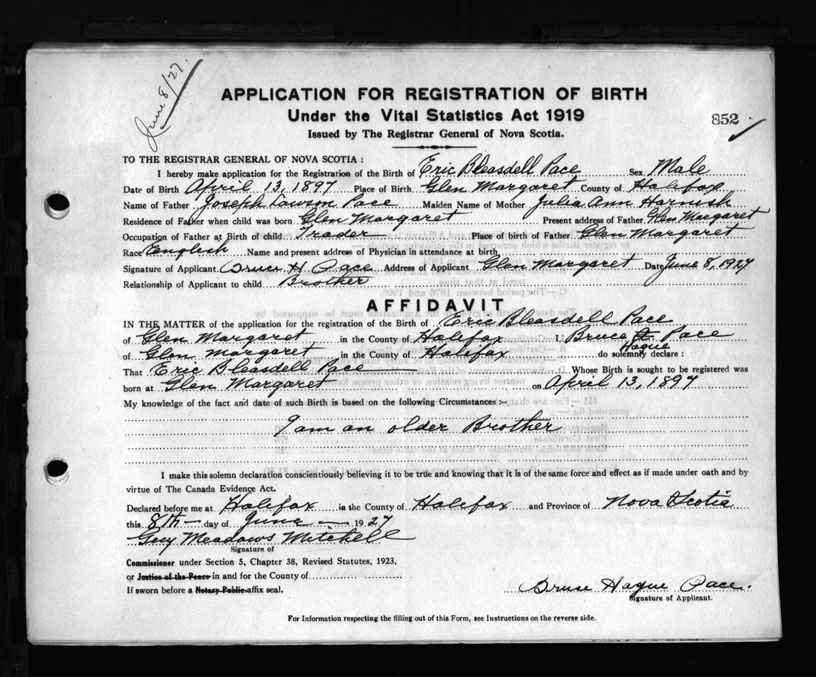 June 8/27.
APPLICATION FOR REGISTRATION OF BIRTH
Under the Vital Statistics Act 1919
852
Issued by The Registrar General of Nova Scotia.
TO THE REGISTRAR GENERAL OF NOVA SCOTIA :
I hereby make application for the Registration of the Birth of Eric Bleasdell Pace Sex Male
Date of Birth April 13, 1897 Place of Birth Glen Margaret County of Halifax
Name of Father Joseph Lawson Pace Maiden Name of Mother Julia Ann Harnish
Residence of Father when child was born Glen Margaret Present address of Father Glen Margaret
Occupation of Father at Birth of child Trader Place of birth of Father Glen Margaret
Race English Name and present address of Physician in attendance at birth
Signature of Applicant Bruce H Pace Address of Applicant Glen Margaret Date June 8, 1927
Relationship of Applicant to child Brother
AFFIDAVIT
IN THE MATTER of the application for the registration of the Birth of Eric Bleasdell Pace
of Glen Margaret in the County of Halifax I, Bruce Hague Pace
of Glen Margaret in the County of Halifax do solemnly declare :
That Eric Bleasdell Pace Whose Birth is sought to be registered was
born at Glen Margaret on April 13, 1897
My knowledge of the fact and date of such Birth is based on the following Circumstances :-
I am an older Brother
I make this solemn declaration conscientiously believing it to be true and knowing that it is of the same force and effect as if made under oath and by
virtue of The Canada Evidence Act.
Declared before me at Halifax in the County of Halifax and Province of Nova Scotia
this 8th day of June 1927
Guy Meadows Mitchell
Signature of
Commissioner under Section 5, Chapter 38, Revised Statutes, 1923,
or Justice of the Peace in and for the County of
If sworn before a Notary Public affix seal.
Bruce Hague Pace.
Signature of Applicant.
For Information respecting the filling out of this Form, see Instructions on the reverse side.